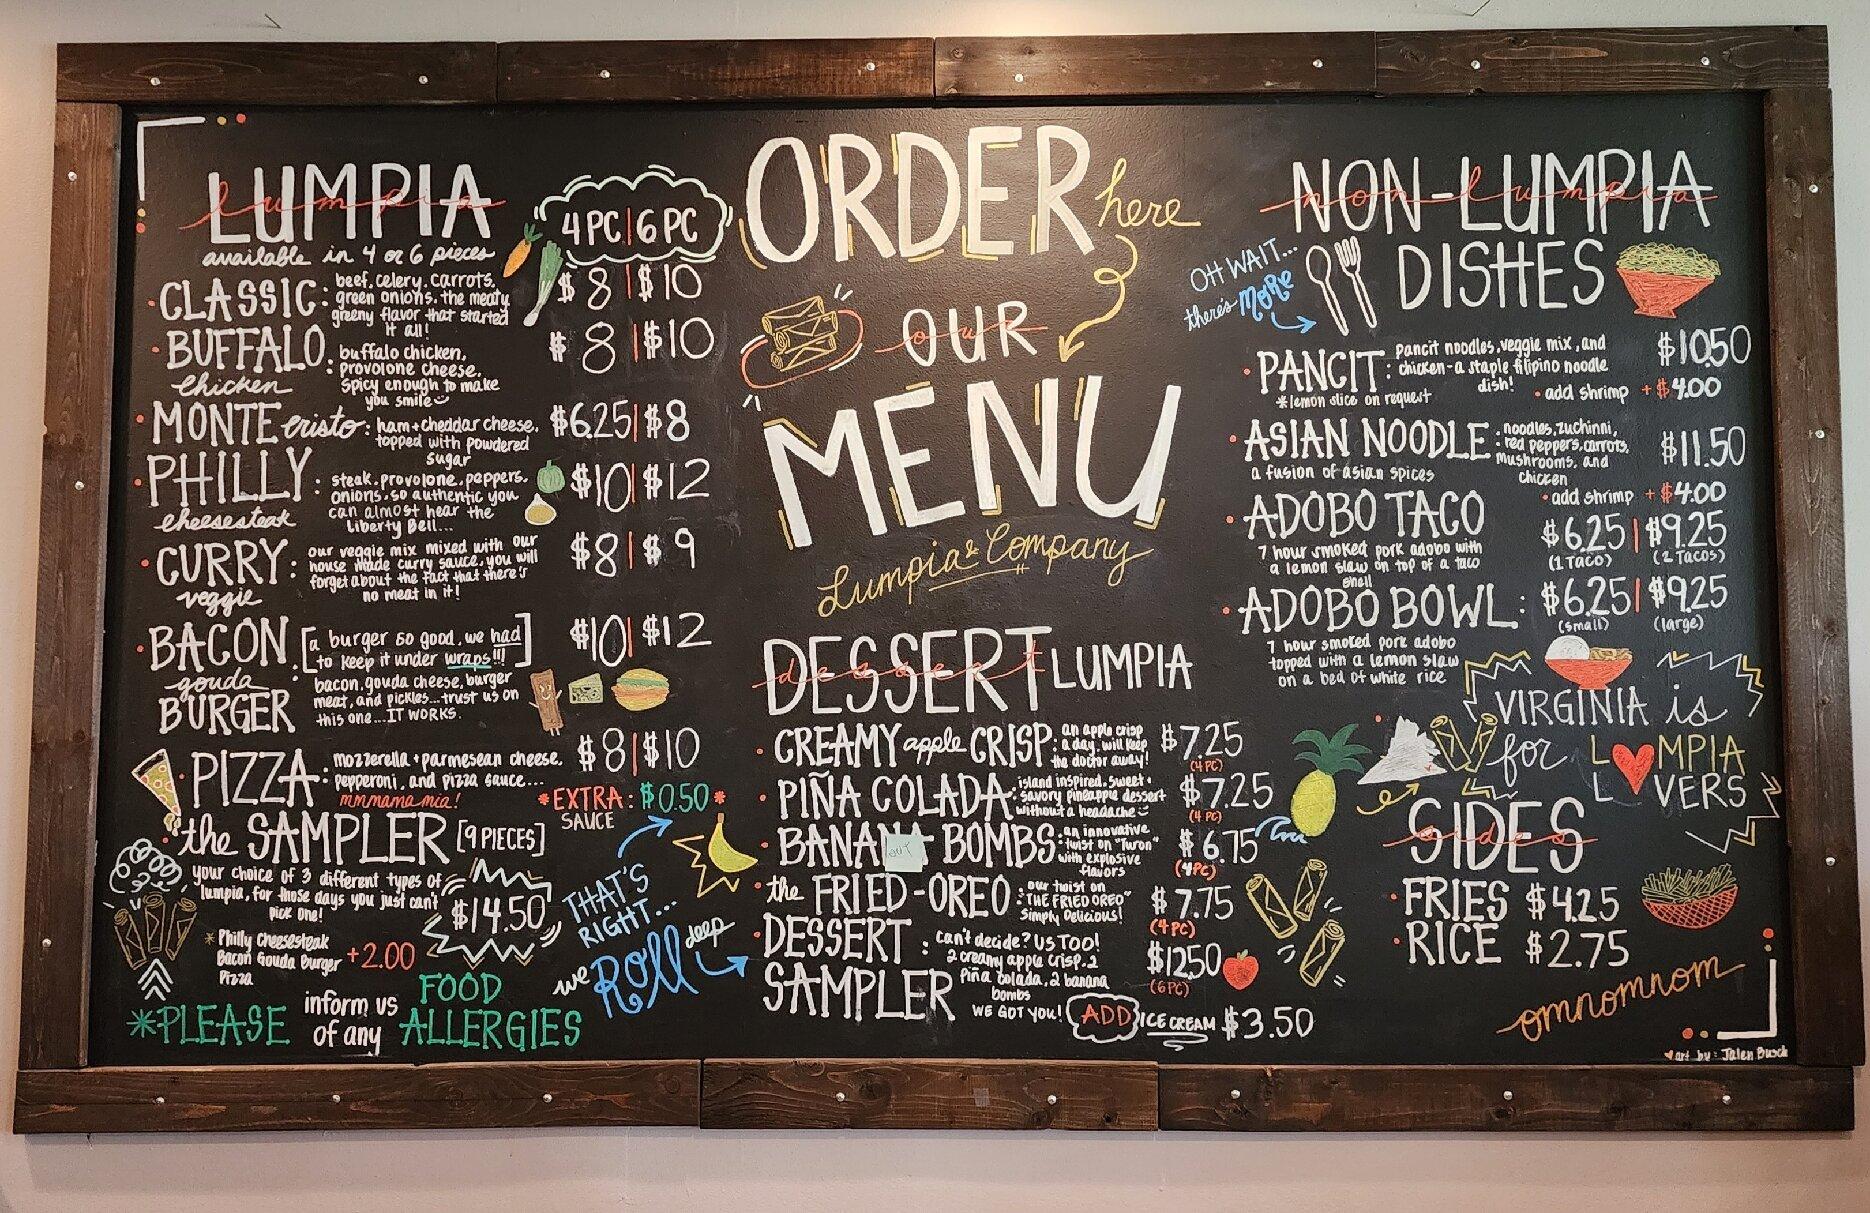 LUMPIA
lumpia
available in 4 or 6 pieces
4 PC | 6 PC
CLASSIC: beef, celery, carrots,
green onions. the meaty
greeny flavor that started
it all!
$8 | $10
BUFFALO
chicken
: buffalo chicken,
provolone cheese.
Spicy enough to make
you smile
$8 | $10
MONTE cristo: ham + cheddar cheese,
topped with powdered
sugar
$6.25 | $8
PHILLY
cheesesteak
: steak, provolone, peppers,
onions, so authentic you
can almost hear the
Liberty Bell...
$10 | $12
CURRY
veggie
: our veggie mix mixed with our
house made curry sauce, you will
forget about the fact that there's
no meat in it!
$8 | $9
BACON
gouda
BURGER
: [a burger so good, we had
to keep it under wraps!!!]
bacon, gouda cheese, burger
meat, and pickles... trust us on
this one... IT WORKS.
$10 | $12
PIZZA: mozzerella + parmesean cheese,
pepperoni, and pizza sauce...
mmmama mia!
$8 | $10
*EXTRA: $0.50*
SAUCE
the SAMPLER [9 PIECES]
your choice of 3 different types of
lumpia, for those days you just can't
pick one!
$14.50
*Philly Cheesesteak
Bacon Gouda Burger
Pizza
+2.00
THAT'S
RIGHT...
we Roll deep
*PLEASE inform us
of any FOOD
ALLERGIES
ORDER here
OUR
our
MENU
Lumpia & Company
DESSERT LUMPIA
dessert
CREAMY apple CRISP: an apple crisp
a day, will keep
the doctor away!
$7.25
(4 PC)
PIÑA COLADA: island inspired, sweet +
savory pineapple dessert
without a headache
$7.25
(4 PC)
BANANA BOMBS: an innovative
twist on "Turon"
with explosive
flavors
$6.75
(4PC)
OUT
the FRIED-OREO: our twist on
"THE FRIED OREO"
Simply Delicious!
$7.75
(4 PC)
DESSERT
SAMPLER
: can't decide? US TOO!
2 creamy apple crisp, 2
piña colada, 2 banana
bombs
WE GOT YOU!
$12.50
(6 PC)
ADD ICE CREAM $3.50
NON-LUMPIA
non-lumpia
DISHES
OH WAIT...
there's MORE
PANCIT: pancit noodles, veggie mix, and
chicken - a staple filipino noodle
dish!
*lemon slice on request
$10.50
• add shrimp + $4.00
ASIAN NOODLE: noodles, zuchinni,
red peppers, carrots,
mushrooms, and
chicken
a fusion of asian spices
$11.50
• add shrimp + $4.00
ADOBO TACO
7 hour smoked pork adobo with
a lemon slaw on top of a taco
shell
$6.25 | $9.25
(1 TACO) (2 TACOS)
ADOBO BOWL:
7 hour smoked pork adobo
topped with a lemon slaw
on a bed of white rice
$6.25 | $9.25
(small) (large)
VIRGINIA is
for L MPIA
L VERS
SIDES
sides
FRIES $4.25
RICE $2.75
omnomnom
art by: Jalen Busch